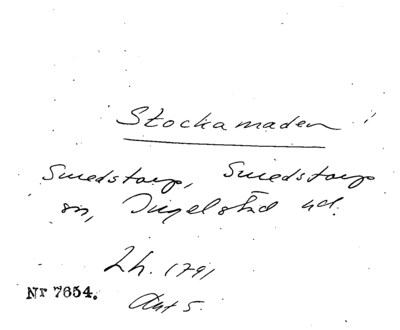 Stockamaden
Smedstorp, Smedstorp
sn, Ingelstad hd.
Lh. 1791
Akt 5.
Nr 7654.